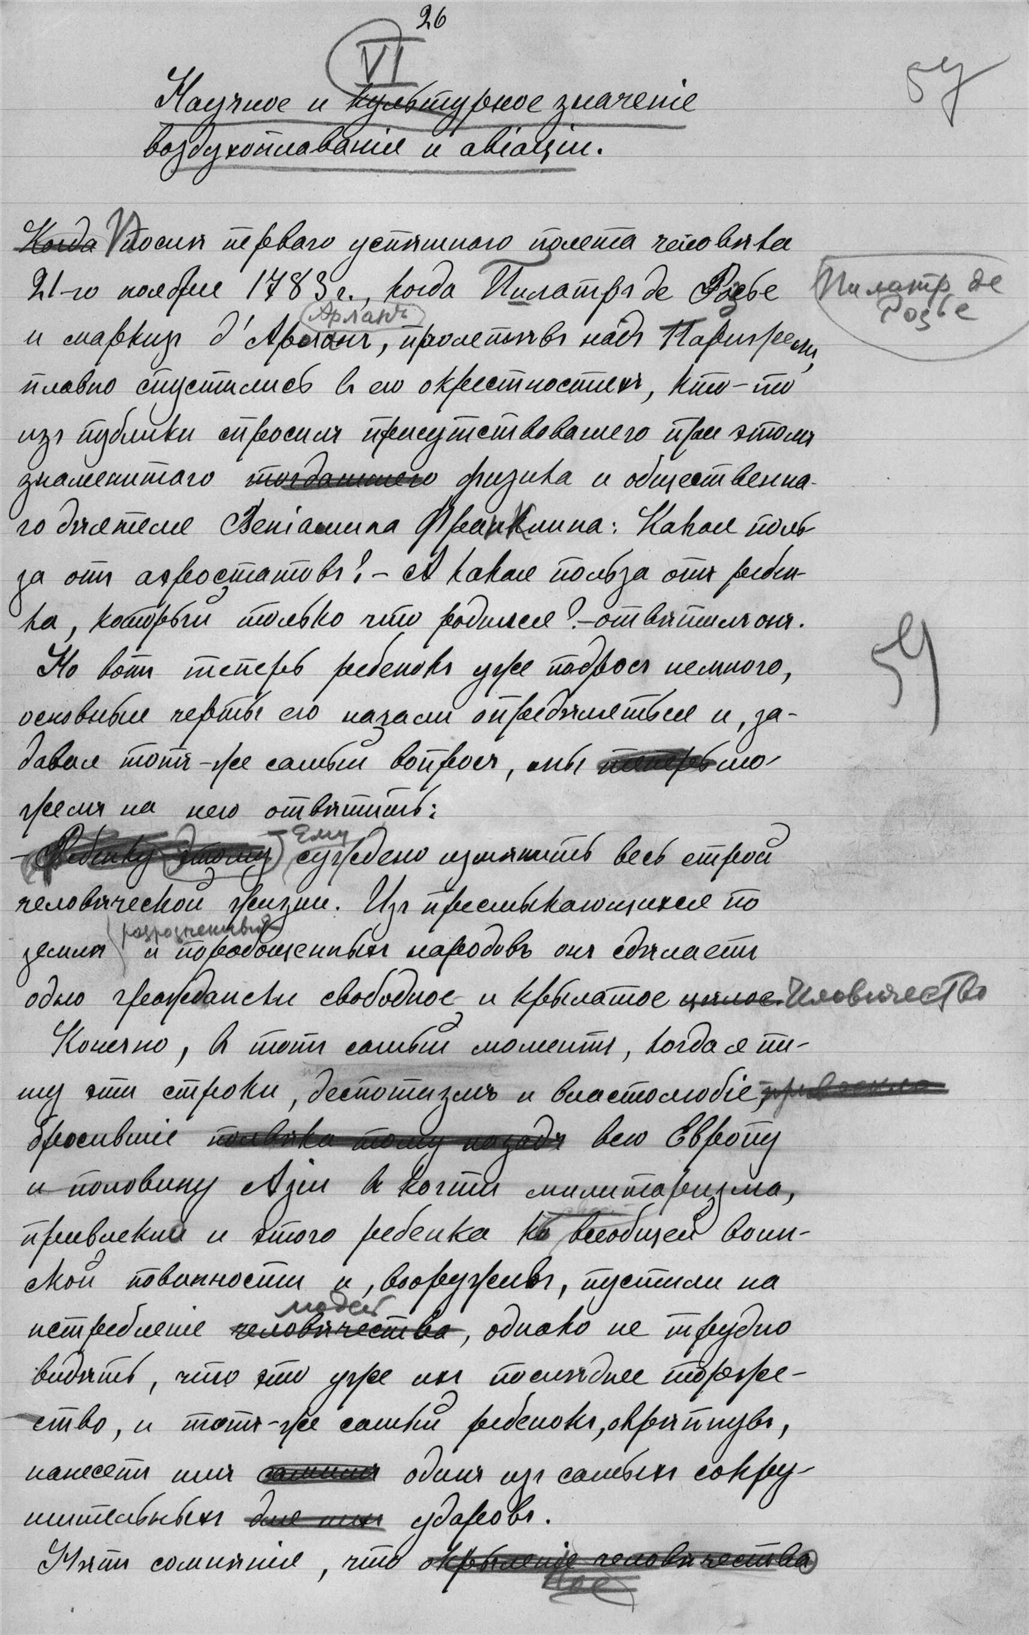 26
VI
57
Научное и культурное значеніе
воздухоплаванія и авіаціи.
Когда Послѣ перваго успѣшнаго полета человѣка
21-го ноября 1783 г., когда Пилатръ де Розье
Пилатр де Розье
Арландъ
и маркизъ д'Арландъ, пролетѣвъ надъ Парижемъ,
плавно спустились в его окрестностяхъ, кто-то
изъ публики спросилъ присутствовавшаго при этомъ
знаменитаго тогдашняго физика и общественна-
го дѣятеля Веніамина Франклина: Какая поль-
за отъ аэростатовъ? – А какая польза отъ ребен-
ка, который только что родился? – отвѣтилъ онъ.
Но вотъ теперь ребенокъ уже подросъ немного,
59
основныя черты его начали опредѣляться и, за-
давая тотъ-же самый вопросъ, мы теперь мо-
жемъ на него отвѣтить:
– Ребенку этому – Ему суждено измѣнить весь строй
человѣческой жизни. Изъ пресмыкающихся по
разрозненныхъ
землѣ и порабощенныхъ народовъ онъ сдѣлаетъ
одно граждански свободное и крылатое цѣлое. человѣчество
Конечно, в тотъ самый моментъ, когда я пи-
шу эти строки, деспотизмъ и властолюбіе, привлекло
бросившіе полвѣка тому назадъ всю Европу
и половину Азіи в когти милитаризма,
привлекли и этого ребенка ко всеобщей воин-
ской повинности и, вооруживъ, пустили на
людей
истребленіе человѣчества, однако не трудно
видѣть, что это уже ихъ послѣднее торже-
ство, и тотъ-же самый ребенокъ, окрѣпнувъ,
нанесетъ имъ самимъ одинъ изъ самыхъ сокру-
шительныхъ для нихъ ударовъ.
Нѣтъ сомнѣнія, что окрыленіе человѣчества